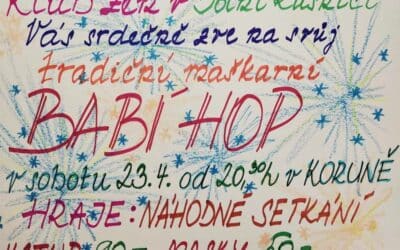 KLUB ŽEN V
Vás srdečně zve na svůj
tradiční maškarní
BABÍ HOP
v sobotu 23.4. od 20,30h v KORUNĚ
HRAJE: NÁHODNÉ SETKÁNÍ